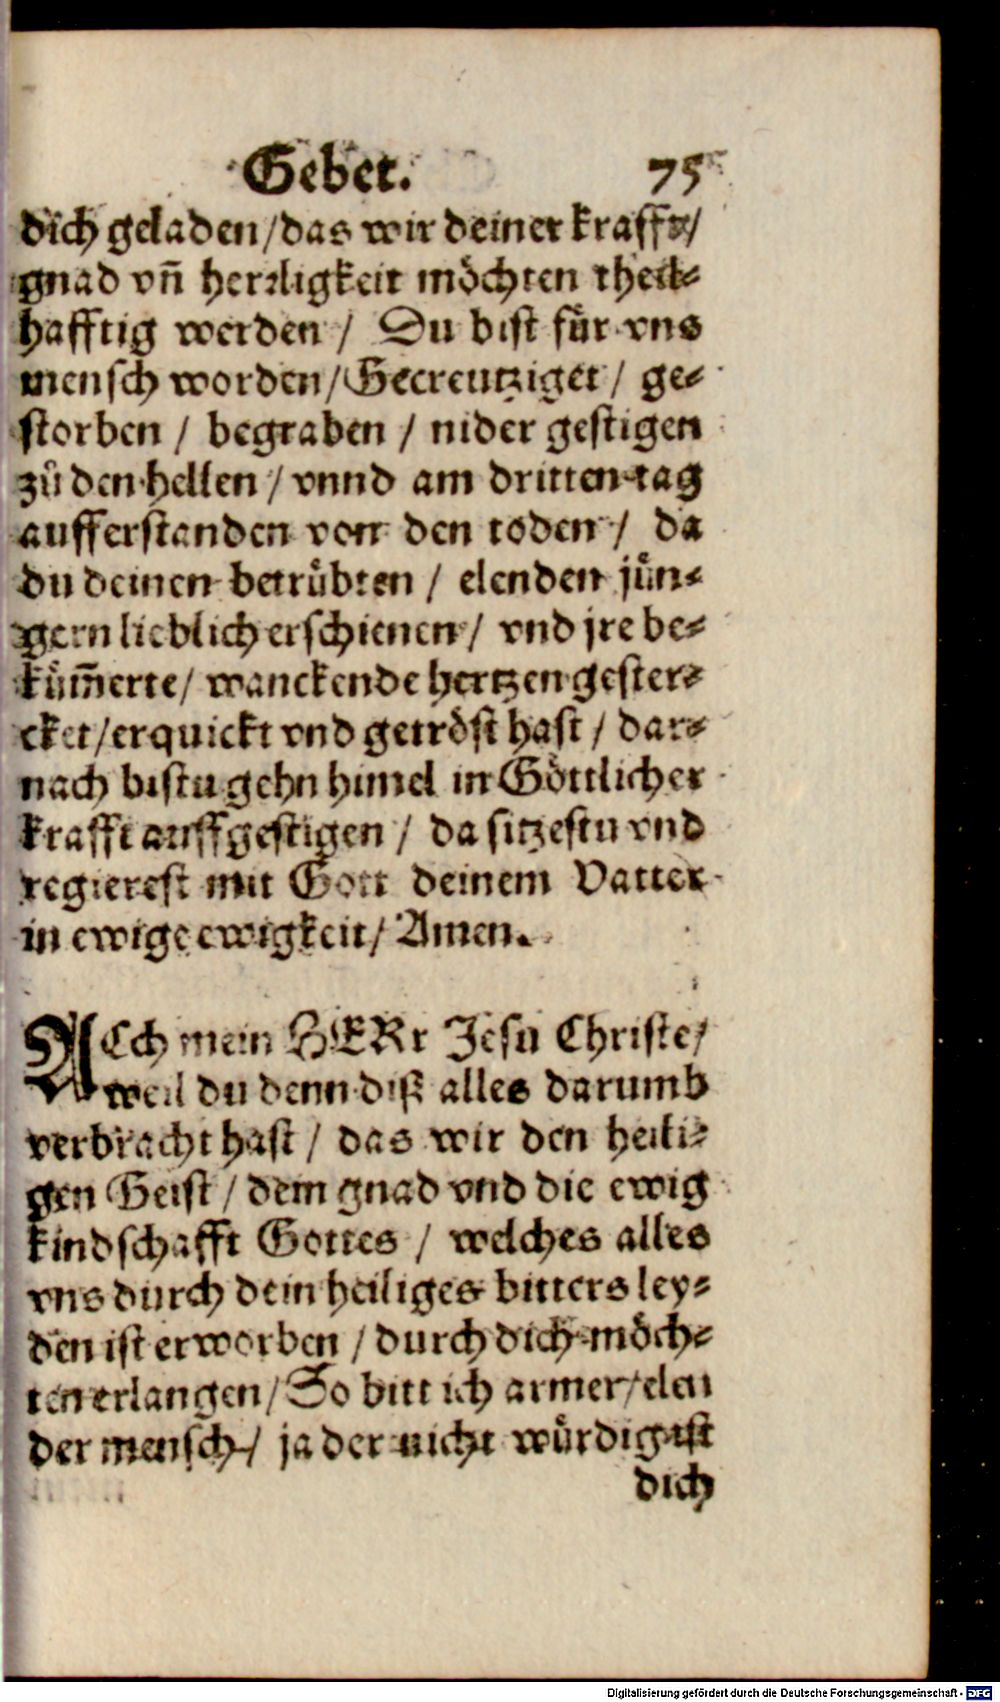 Gebet. 75
dich geladen / das wir deiner krafft /
gnad vñ herꝛligkeit möchten theil⸗
hafftig werden / Du bist fůr vns
mensch worden / Gecreutziget / ge⸗
storben / begraben / nider gestigen
zů den hellen / vnnd am dritten tag
aufferstanden von den toden / da
du deinen betrůbten / elenden jůn⸗
gern lieblich erschienen / vnd jre be⸗
kům̃erte / wanckende hertzen gester⸗
cket / erquickt vnd getröst hast / dar⸗
nach bistu gehn himel in Göttlicher
krafft auffgestigen / da sitzestu vnd
regierest mit Gott deinem Vatter
in ewige ewigkeit / Amen.
ACch mein HERr Jesu Christe /
weil du denn diß alles darumb
verbracht hast / das wir den heili⸗
gen Geist / dein gnad vnd die ewig
kindschafft Gottes / welches alles
vns durch dein heiliges bitters ley⸗
den ist erworben / durch dich möch⸗
ten erlangen / So bitt ich armer / elen
der mensch / ja der nicht wůrdig ist
dich
Digitalisierung gefördert durch die Deutsche Forschungsgemeinschaft - DFG